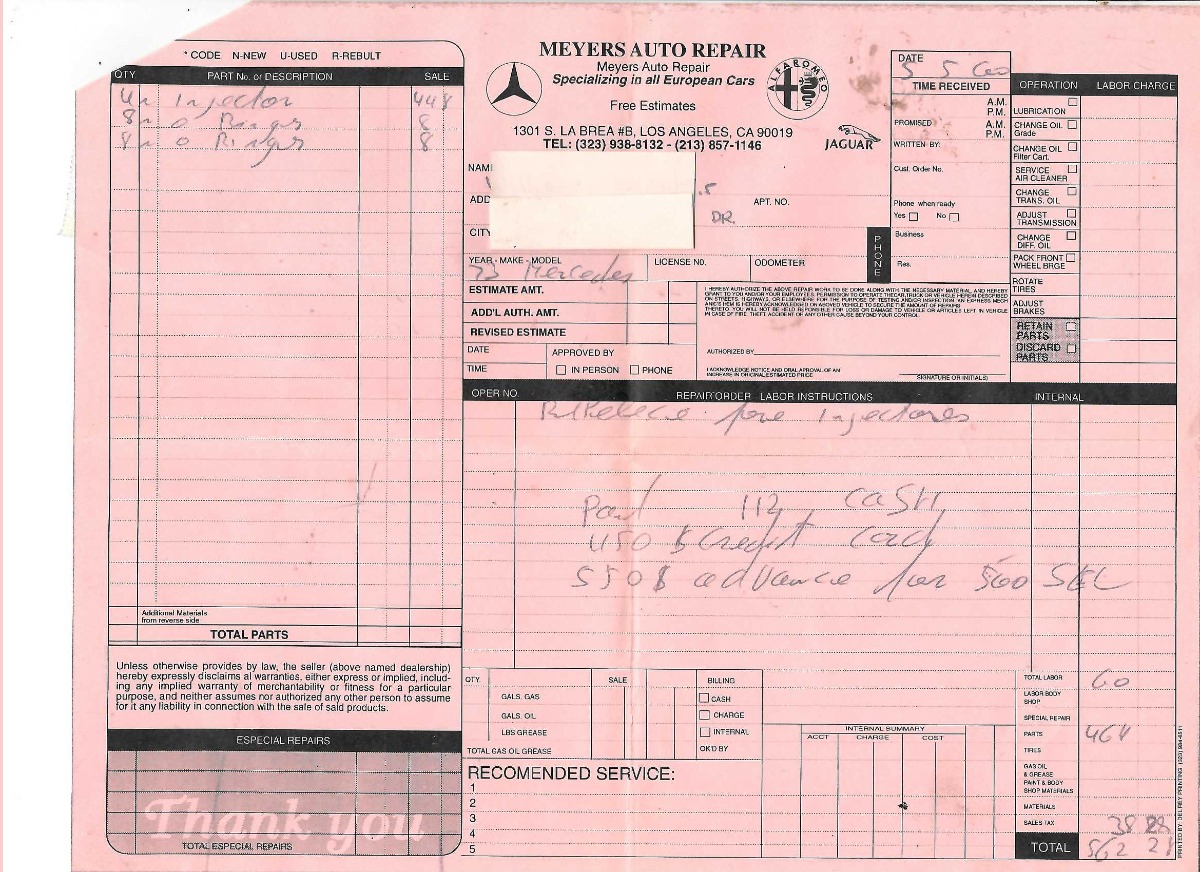 * CODE N-NEW U-USED R-REBULT
QTY PART No. or DESCRIPTION SALE
4 n Injector 448
8 n o Rings 8
8 n o Rings 8
Additional Materials
from reverse side
TOTAL PARTS
Unless otherwise provides by law, the seller (above named dealership)
hereby expressly disclaims al warranties, either express or implied, includ-
ing any implied warranty of merchantability or fitness for a particular
purpose, and neither assumes nor authorized any other person to assume
for it any liability in connection with the sale of said products.
ESPECIAL REPAIRS
Thank you
TOTAL ESPECIAL REPAIRS
MEYERS AUTO REPAIR
Meyers Auto Repair
Specializing in all European Cars
Free Estimates
1301 S. LA BREA #B, LOS ANGELES, CA 90019
TEL: (323) 938-8132 - (213) 857-1146
ALFA ROMEO
JAGUAR
NAM
ADD
APT. NO.
DR.
CITY
YEAR - MAKE - MODEL LICENSE NO. ODOMETER
73 Mercedes
ESTIMATE AMT.
ADD'L AUTH. AMT.
REVISED ESTIMATE
DATE APPROVED BY
TIME IN PERSON PHONE
I HEREBY AUTHORIZE THE ABOVE REPAIR WORK TO BE DONE ALONG WITH THE NECESSARY MATERIAL, AND HEREBY
GRANT TO YOU AND/OR YOUR EMPLOYEES, PERMISSION TO OPERATE THE CAR, TRUCK OR VEHICLE HEREIN DESCRIBED
ON STREETS, HIGHWAYS, OR ELSEWHERE FOR THE PURPOSE OF TESTING AND/OR INSPECTION. AN EXPRESS MECH
ANIC'S
THERETO. YOU WILL NOT BE HELD REPONSIBLE FOR LOSS OR DAMAGE TO VEHICLE OR ARTICLES LEFT IN VEHICLE
IN CASE OF FIRE, THEFT, ACCIDENT OR ANY OTHER CAUSE BEYOND YOUR CONTROL.
AUTHORIZED BY
I ACKNOWLEDGE NOTICE AND ORAL APROVAL OF AN
INCREASE IN ORIGINAL ESTIMATED PRICE
SIGNATURE OR INITIALS)
DATE
5 5
TIME RECEIVED
A.M.
P.M.
PROMISED A.M.
P.M.
WRITTEN BY:
Cust. Order No.
Phone when ready
Yes No
PHONE
Business
Res.
OPERATION LABOR CHARGE
LUBRICATION
CHANGE OIL
Grade
CHANGE OIL
Filter Cart.
SERVICE
AIR CLEANER
CHANGE
TRANS. OIL
ADJUST
TRANSMISSION
CHANGE
DIFF. OIL
PACK FRONT
WHEEL BRGE
ROTATE
TIRES
ADJUST
BRAKES
RETAIN
PARTS
DISCARD
PARTS
OPER NO. REPAIR ORDER LABOR INSTRUCTIONS INTERNAL
Injectores
112 cash
450 $ Credit Card
550 $ advance for 560 SEL
QTY SALE
GALS. GAS
GALS. OIL
LBS GREASE
TOTAL GAS OIL GREASE
BILLING
CASH
CHARGE
INTERNAL
OK'D BY
INTERNAL SUMMARY
ACCT CHARGE COST
RECOMENDED SERVICE:
1
2
3
4
5
TOTAL LABOR 60
LABOR BODY
SHOP
SPECIAL REPAIR
PARTS 464
TIRES
GAS OIL
& GREASE
PAINT & BODY
SHOP MATERIALS
MATERIALS
SALES TAX 38 28
TOTAL 562 28